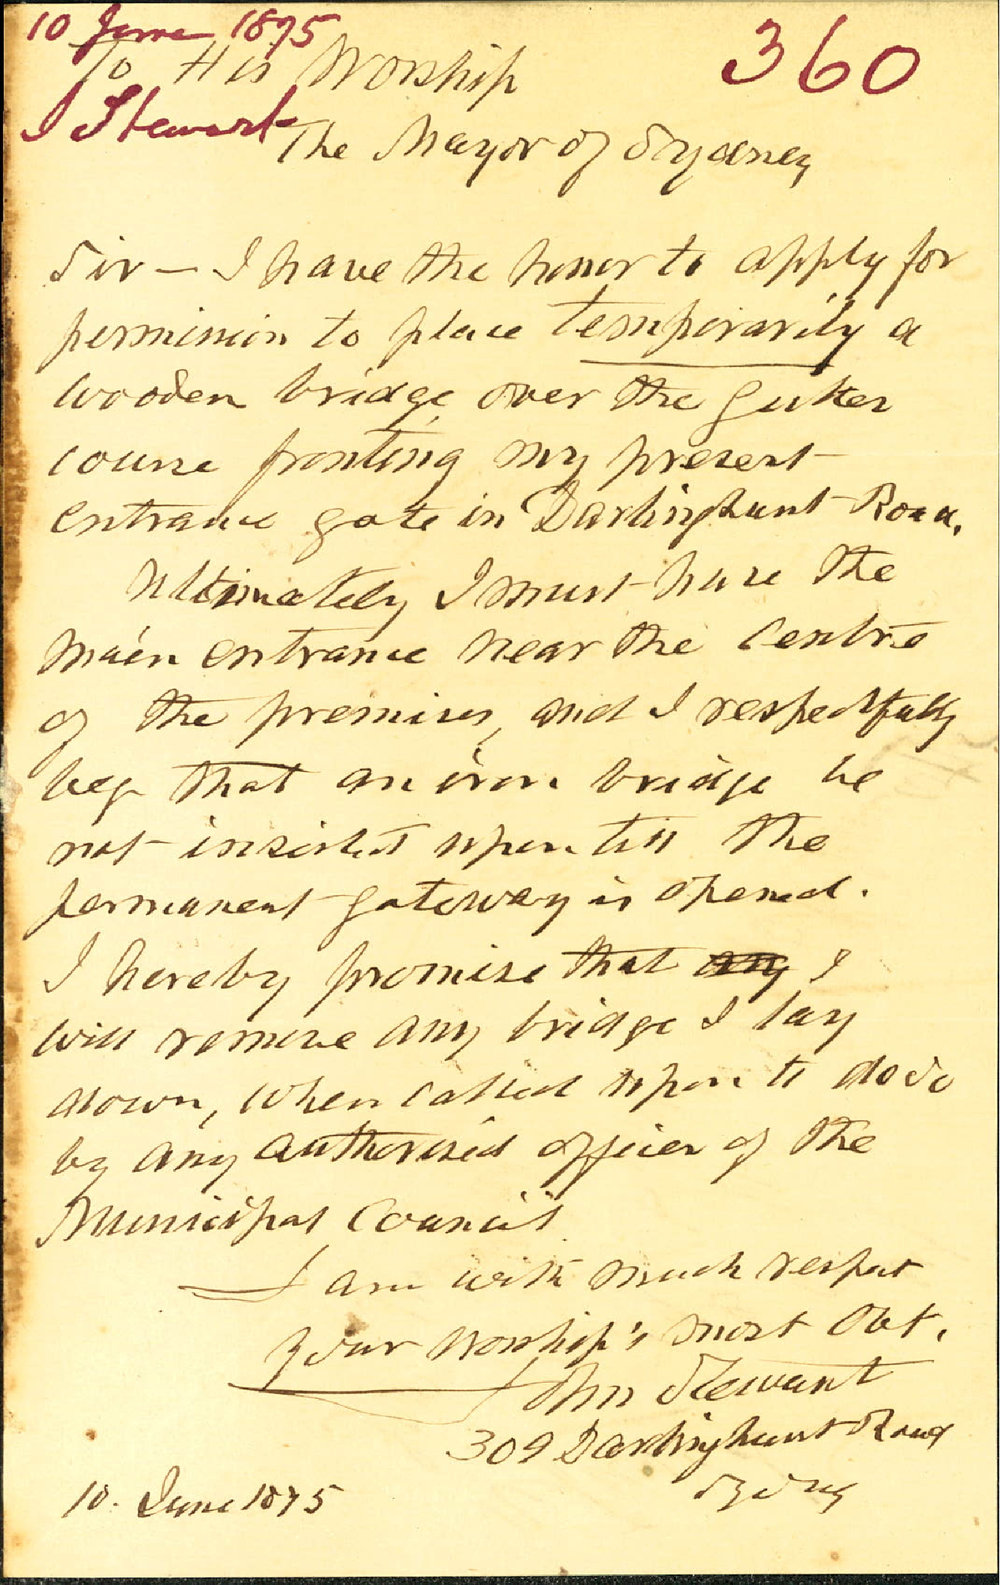 10 June 1875
360
To His Worship
J Stewart
The Mayor of Sydney
Sir — I have the honor to apply for
permission to place temporarily a
wooden bridge over the gutter
course fronting my present
entrance gate in Darlinghurst Road.
Ultimately I must have the
main entrance near the centre
of the premises, and I respectfully
beg that an iron bridge be
not insisted upon till the
permanent gateway is opened.
I hereby promise that any I
will remove any bridge I lay
down, when called upon to do so
by any authorised officer of the
Municipal Council
I am with much respect
Your Worship's most Obt.
John Stewart
309 Darlinghurst Road
Sydney
10. June 1875